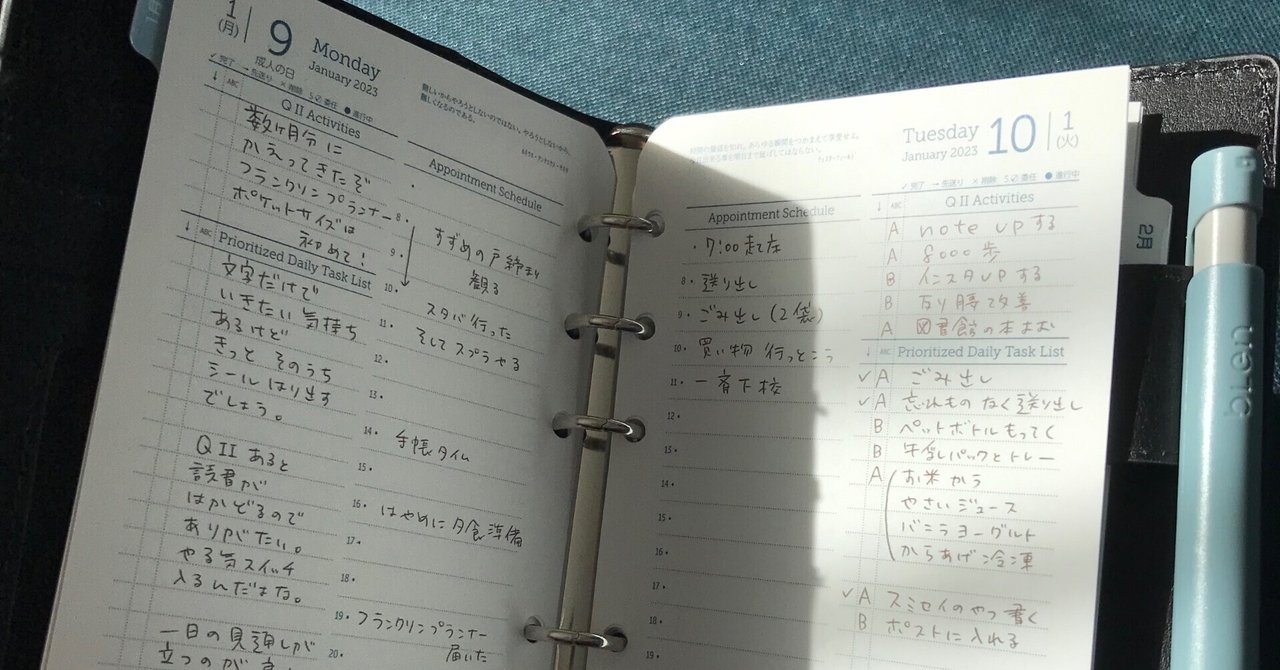 1
(月)
9
Monday
January 2023
成人の日
✓完了 →先送り ×削除 S⊘委任 ●進行中
↓ ABC QⅡ Activities
数ヶ月分に
かえってきたぞ
フランクリンプランナー
ポケットサイズは
初めて！
↓ ABC Prioritized Daily Task List
文字だけで
いきたい気持ち
あるけど
きっと そのうち
シールはり出す
でしょう。
QⅡ あると
読書が
はかどるので
ありがたい。
やる気スイッチ
入るんだよな。
一日の見通しが
立つのが
難しいからやろうとしないのではない。やろうとしないから、
難しくなるのである。
Appointment Schedule
8
すずめの戸締まり
9
観る
10
スタバ行った
11
そして スプラやる
12
13
14 手帳タイム
15
16 はやめに夕食準備
17
18
19 フランクリンプランナー
届いた
20
Tuesday 10
January 2023
1
(火)
✓完了 →先送り ×削除 S⊘委任 ●進行中
Appointment Schedule
・7:00 起床
8 送り出し
9 ごみ出し (2袋)
10 買い物 行っとこう
11 一斉下校
12
13
14
15
16
17
18
19
↓ ABC QⅡ Activities
A note upする
A 8000歩
B インスタupする
B 反り腰改善
A 図書館の本よむ
↓ ABC Prioritized Daily Task List
✓A ごみ出し
✓A 忘れものなく送り出し
B ペットボトルもってく
B 牛乳パックとトレー
A お米から
やさいジュース
バニラヨーグルト
からあげ冷凍
✓A スミセイのやつ書く
B ポストに入れる
2月
bLen